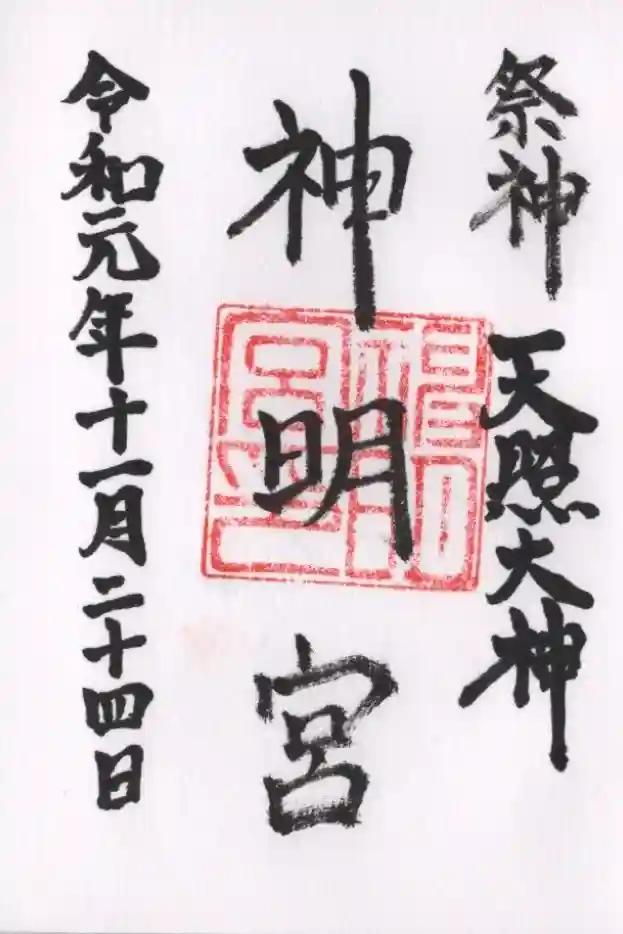 祭神 天照大神
神明宮
令和元年十一月二十四日